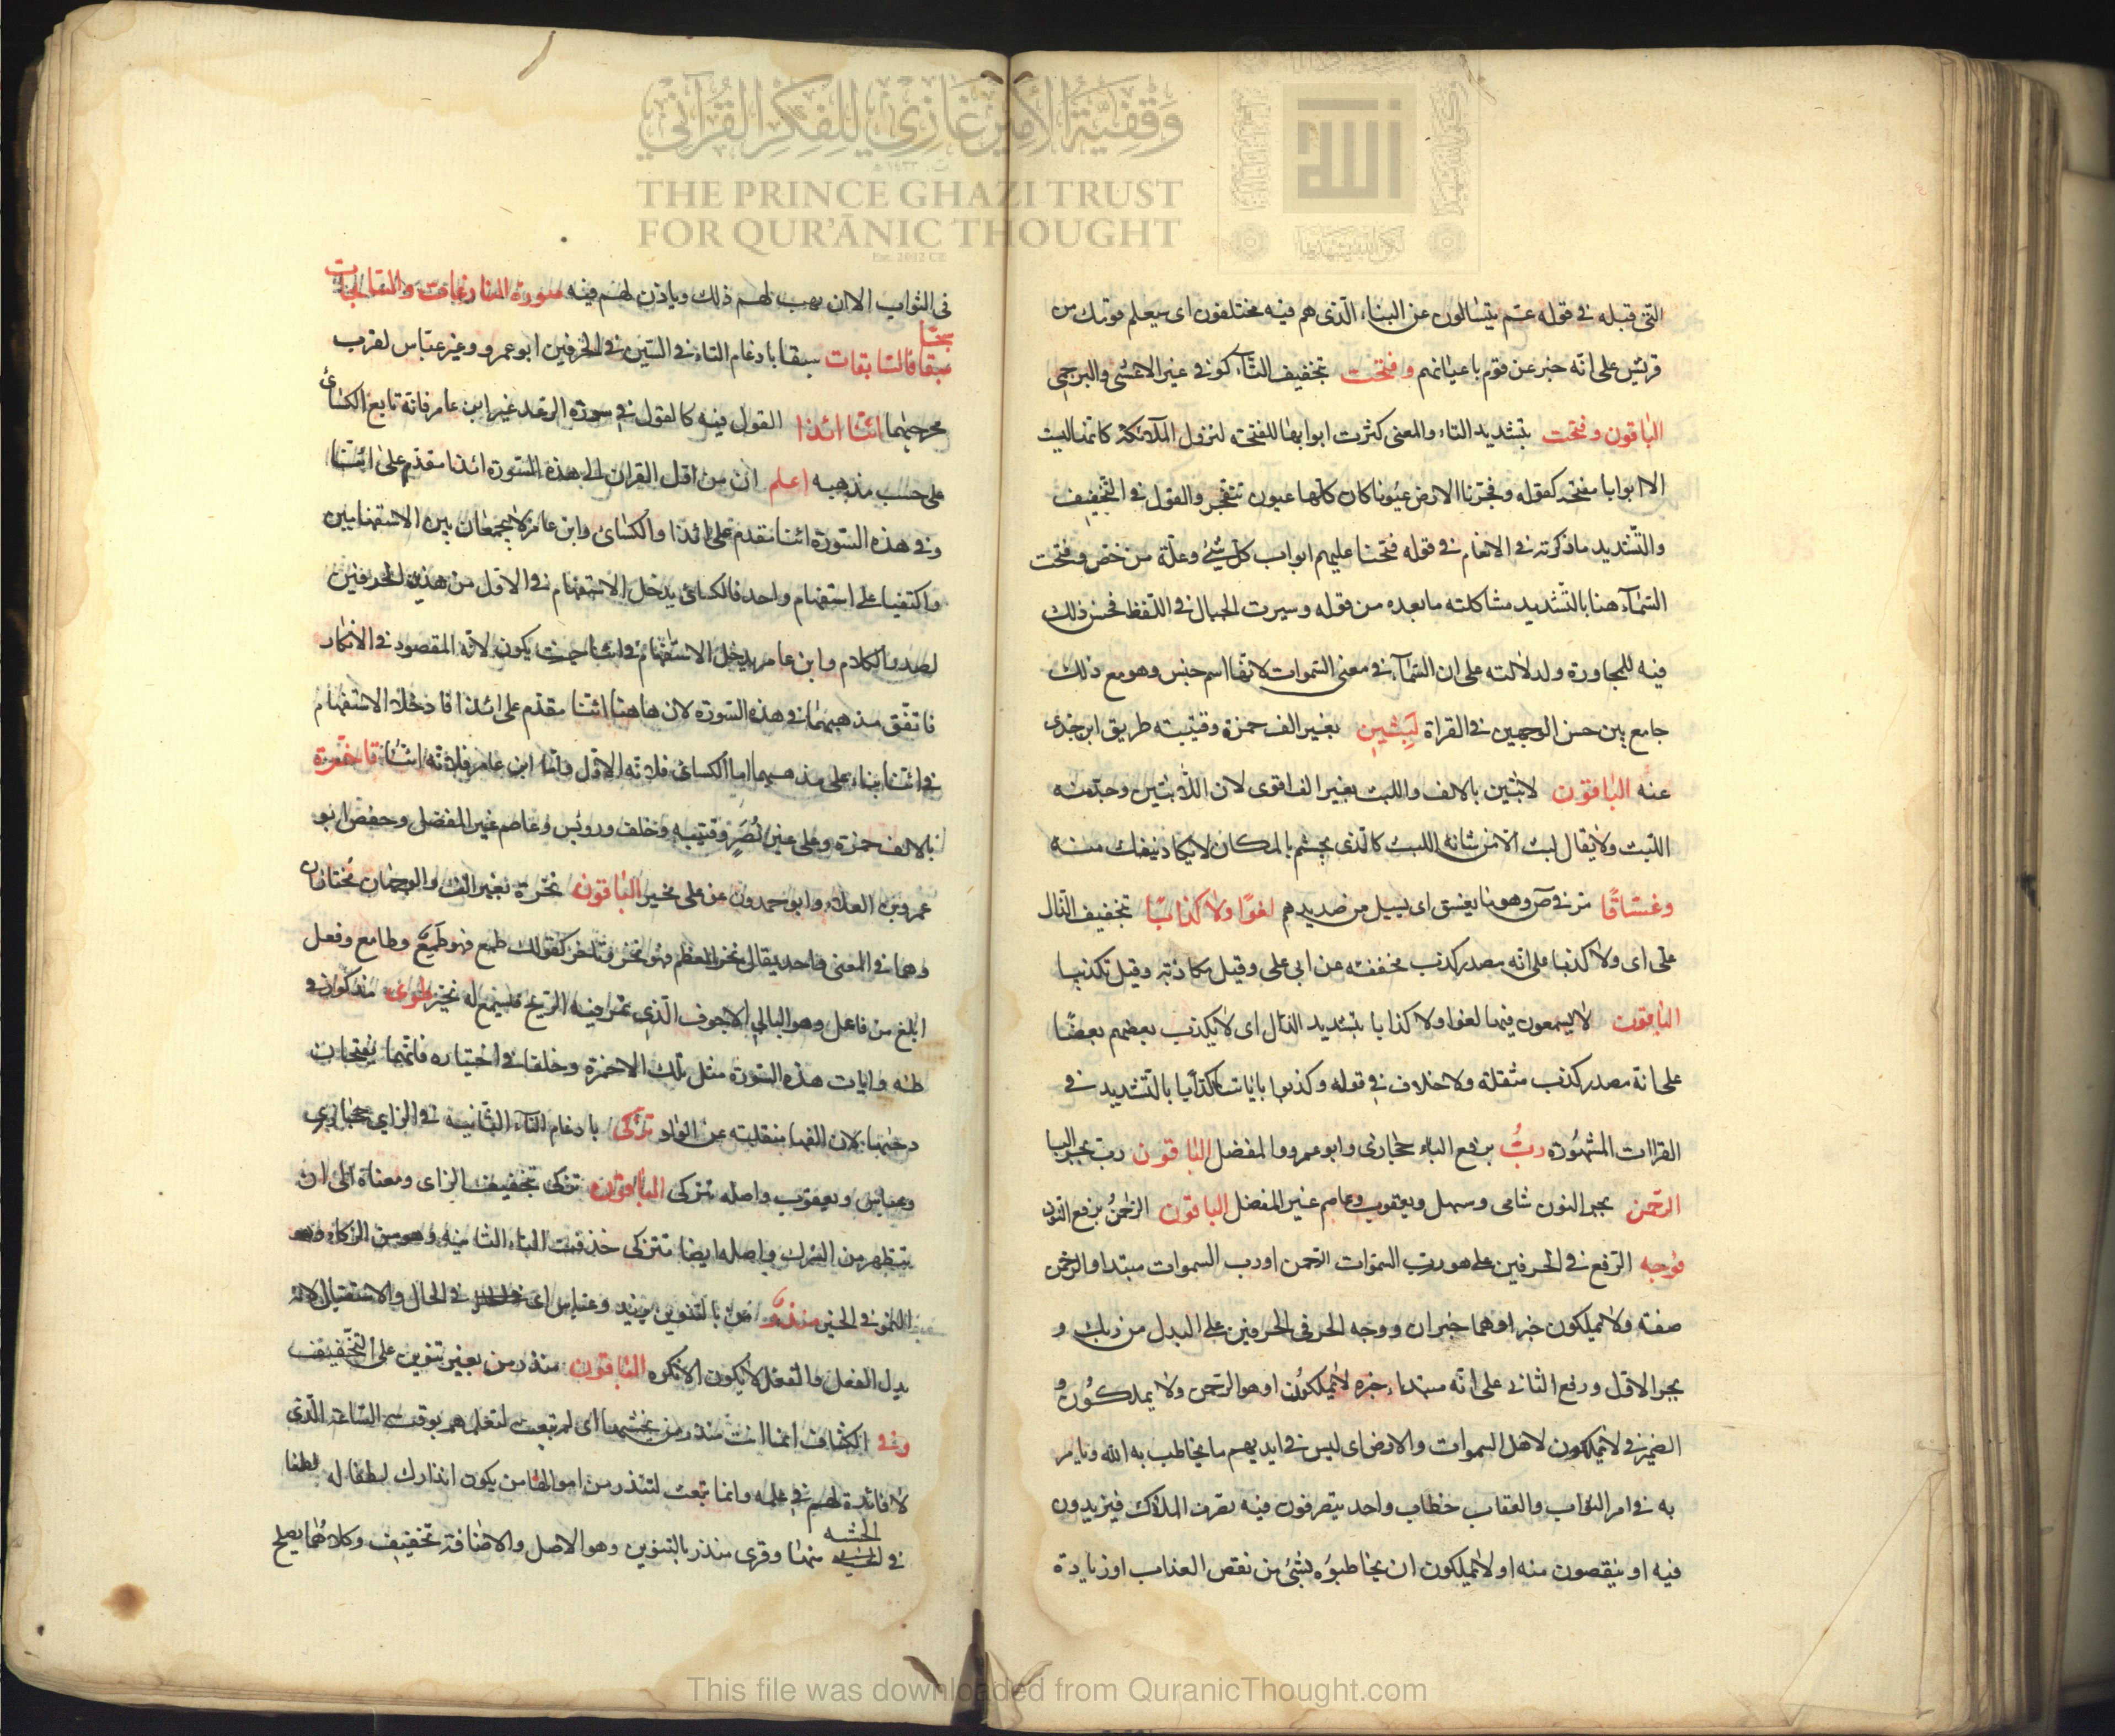 وقفية الأمير غازي للفكر القرآني
THE PRINCE GHAZI TRUST
FOR QUR'ĀNIC THOUGHT
Est. 2012 CE
الله
التى قبله فى قوله عم يتسالون عن النباء الذى هم فيه مختلفون اى سيعلم قومك من
قريش على انه خبر عن قوم باعيانهم وفتحت بتخفيف التاء كوفى غير الاعشى والبرجمى
الباقون وفتحت بتشديد التاء والمعنى كثرت ابوابها للفتحة لنزول الملائكة كانها ليست
الا ابوابا مفتحة كقوله وفجرنا الارض عيونا كان كلها عيون تتفجر والقول فى التخفيف
والتشديد ما ذكرته فى الانعام فى قوله فتحنا عليهم ابواب كل شئ وعلة من خص وفتحت
السماء هنا بالتشديد مشاكلته ما بعده من قوله وسيرت الجبال فى اللفظ فحسن ذلك
فيه للمجاورة ولدلالته على ان السماء فى معنى السموات لانها اسم جنس وهو مع ذلك
جامع بين حسن الوجهين فى القراة لبثين بغير الف حمزة وقتيبة طريق ابن
عنه الباقون لابثين بالالف واللبث بغير الف اقوى لان اللابثين وجد منه
اللبث ولا يقال لبث الا من شانه اللبث كالذى يجثم بالمكان لا يكاد ينفك منه
وغساقا مر فى ص وهو ما يغسق اى يسيل من صديدهم لغوا ولا كذابا بتخفيف الذال
على اى ولا كذبا على انه مصدر كذب مخففة عن ابى على وقيل مكاذبة وقيل تكذيبا
الباقون لا يسمعون فيها لغوا ولا كذابا بتشديد الذال اى لا يكذب بعضهم بعضا
على انه مصدر كذب مثقلة ولا خلاف فى قوله وكذبوا باياتنا كذابا بالتشديد فى
القراات المشهورة رب برفع الباء حجازى وابو عمرو والمفضل الباقون رب بجر البا
الرحمن بجر النون شامى وسهل ويعقوب وعاصم غير المفضل الباقون الرحمن برفع النون
فوجه الرفع فى الحرفين على هو رب السموات الرحمن او رب السموات مبتدا والرحمن
صفة ولا يملكون خبر او هما خبران ووجه الجر فى الحرفين على البدل من ربك و
بجر الاول ورفع الثانى على انه مبتداء خبره لا يملكون او هو الرحمن ولا يملكون و
الضمير فى لا يملكون لاهل السموات والارض اى ليس فى ايديهم ما يخاطب به الله ويامر
به فى امر الثواب والعقاب خطاب واحد يتصرفون فيه تصرف الملاك فيزيدون
فيه او ينقصون منه او لا يملكون ان يخاطبوه بشئ من نقص العذاب او زيادة
فى الثواب الا ان يهب لهم ذلك وياذن لهم فيه سورة النازعات والسابحات
سبحا
سبقا فالسابقات سبقا بادغام التاء فى السين فى الحرفين ابو عمرو وغير عباس لقرب
مخرجيهما ائنا ائذا القول فيه كالقول فى سورة الرعد غير ابن عامر فانه تابع الكسائى
على حسب مذهبه اعلم ان من اول القران الى هذه السورة ائذا مقدم على ائنا
وفى هذه السورة ائنا مقدم على ائذا والكسائى وابن عامر لا يجمعان بين الاستفهامين
واكتفيا على استفهام واحد فالكسائى يدخل الاستفهام فى الاول من هذين الحرفين
لصدر الكلام وابن عامر يدخل الاستفهام فى ائنا حيث يكون لانه المقصود فى الانكار
فاتفق مذهبهما فى هذه السورة لان هاهنا ائنا مقدم على ائذا فادخلا الاستفهام
فى ائنا بناء على مذهبيهما اما الكسائى فلانه الاول واما ابن عامر فلانه ائنا ناخرة
بالالف حمزة وعلى غير نصير وقتيبة وخلف ورويس وعاصم غير المفضل وحفص ابو
عمرو بن العلاء وابو حمدون عن على مخير الباقون نخرة بغير الف والوجهان مختاران
وهما فى المعنى واحد يقال نخر العظم فهو نخر وناخر كقولك طمع فهو طمع وطامع وفعل
ابلغ من فاعل وهو البالى الاجوف الذى تمر فيه الريح فيسمع له نخير طوى مذكور فى
طه وايات هذه السورة مثل تلك الا حمزة وخلفا فى اختياره فانهما يفتحان
دحيها لان الفها منقلبة عن الواو تزكى بادغام التاء الثانية فى الزاى حجازى
وعباس ويعقوب واصله تتزكى الباقون تزكى بتخفيف الزاى ومعناه الى ان
يتطهر من الشرك واصله ايضا تتزكى حذفت التاء الثانية وهو من الزكاء وهو
النمو فى الخير منذر من بالتنوين يزيد وعباس اى فى الحال والاستقبال لانه
بدل الفعل والفعل لا يكون الا نكره الباقون منذر من بغير تنوين على التخفيف
وفى الكشاف انما انت منذر من يخشيها اى لم تبعث لتعلمهم بوقت الساعة الذى
لا فائدة لهم فى علمه وانما بعثت لتنذر من اهوالها من يكون انذارك لطفا له
فى الخشية منها وقرى منذر بالتنوين وهو الاصل والاضافة تخفيف وكلاهما يصلح
This file was downloaded from QuranicThought.com